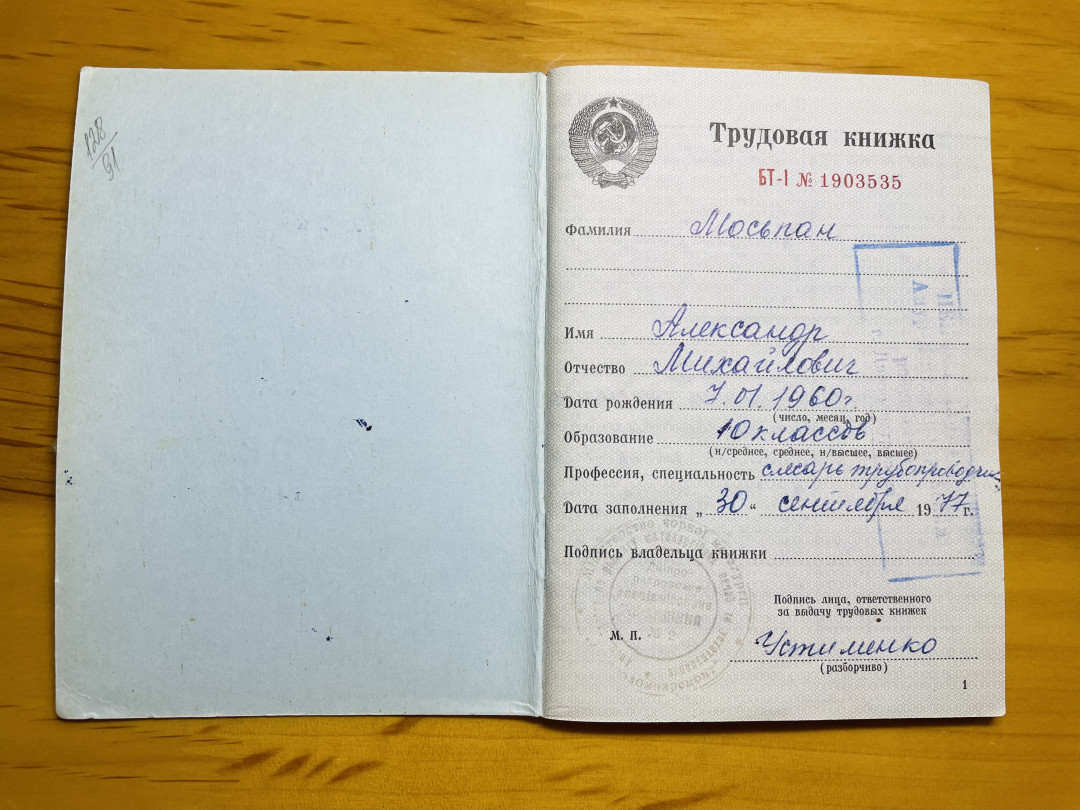 128
91
Трудовая книжка
БТ-I № 1903535
Фамилия Мосьпан
Имя Александр
Отчество Михайлович
Дата рождения 7.01.1960г.
(число, месяц, год)
Образование 10 классов
(н/среднее, среднее, н/высшее, высшее)
Профессия, специальность слесарь трубопроводчик
Дата заполнения „30“ сентября 1977 г.
Подпись владельца книжки
Подпись лица, ответственного
за выдачу трудовых книжек
М. П.
Устименко
(разборчиво)
1